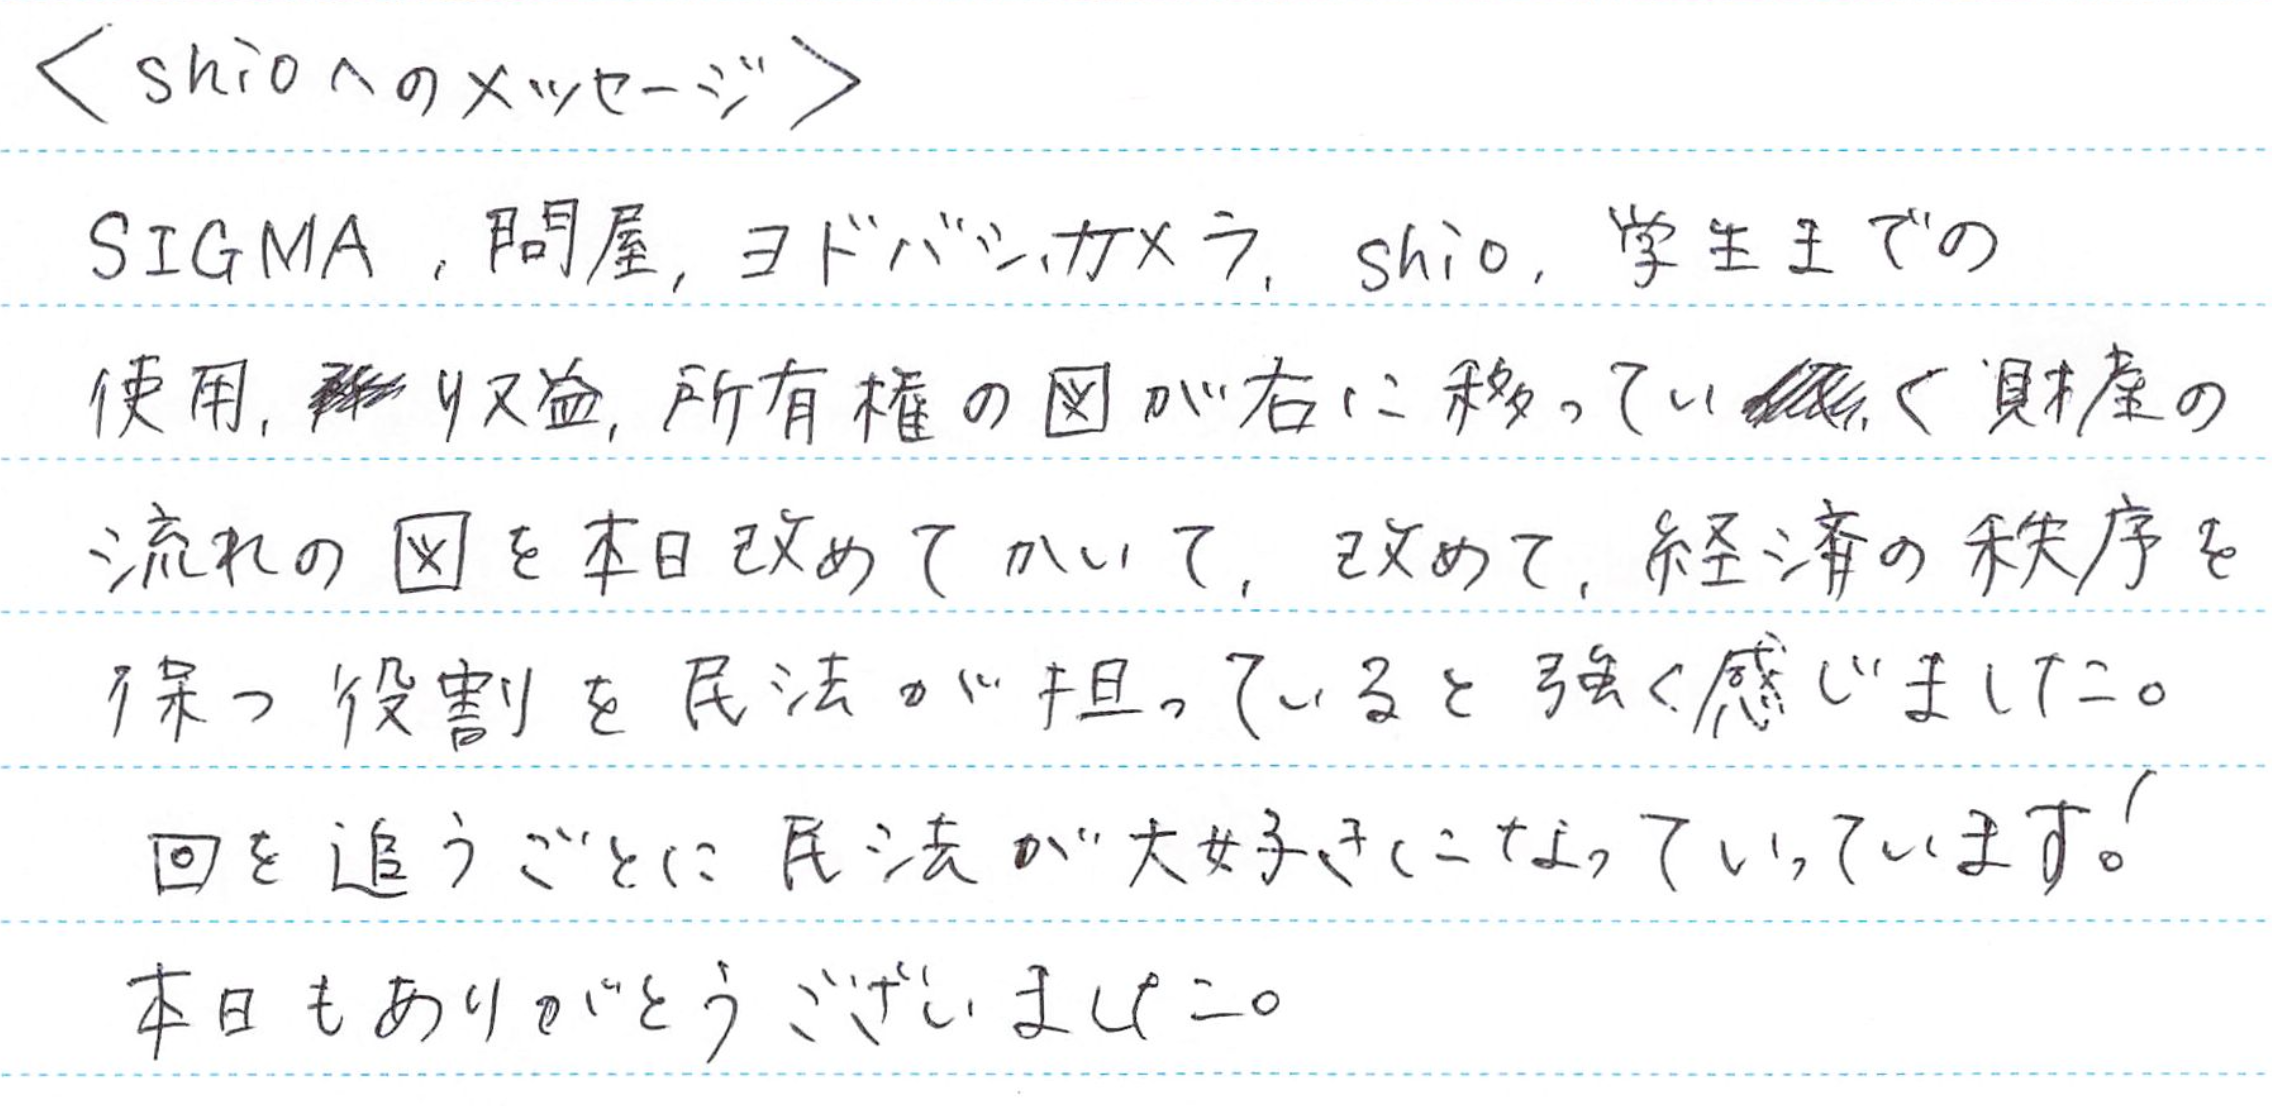 <shioへのメッセージ>
SIGMA, 問屋, ヨドバシカメラ, shio, 学生までの
使用, 収益, 所有権の図が右に移っていく財産の
流れの図を本日改めてかいて, 改めて, 経済の秩序を
保つ役割を民法が担っていると強く感じました。
回を追うごとに民法が大好きになっていっています!
本日もありがとうございました。